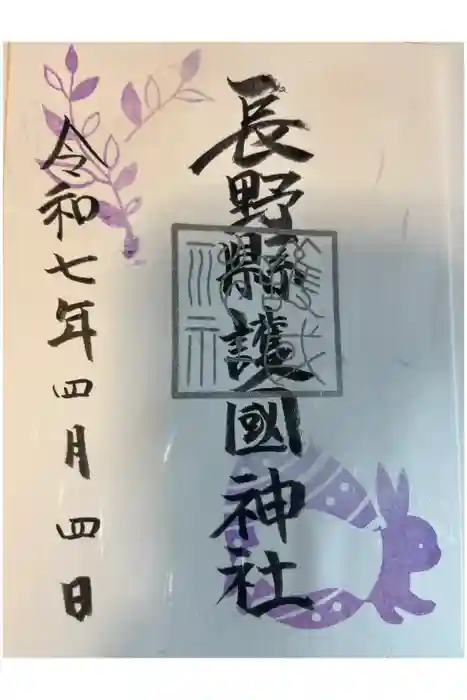 長野縣護國神社
令和七年四月四日